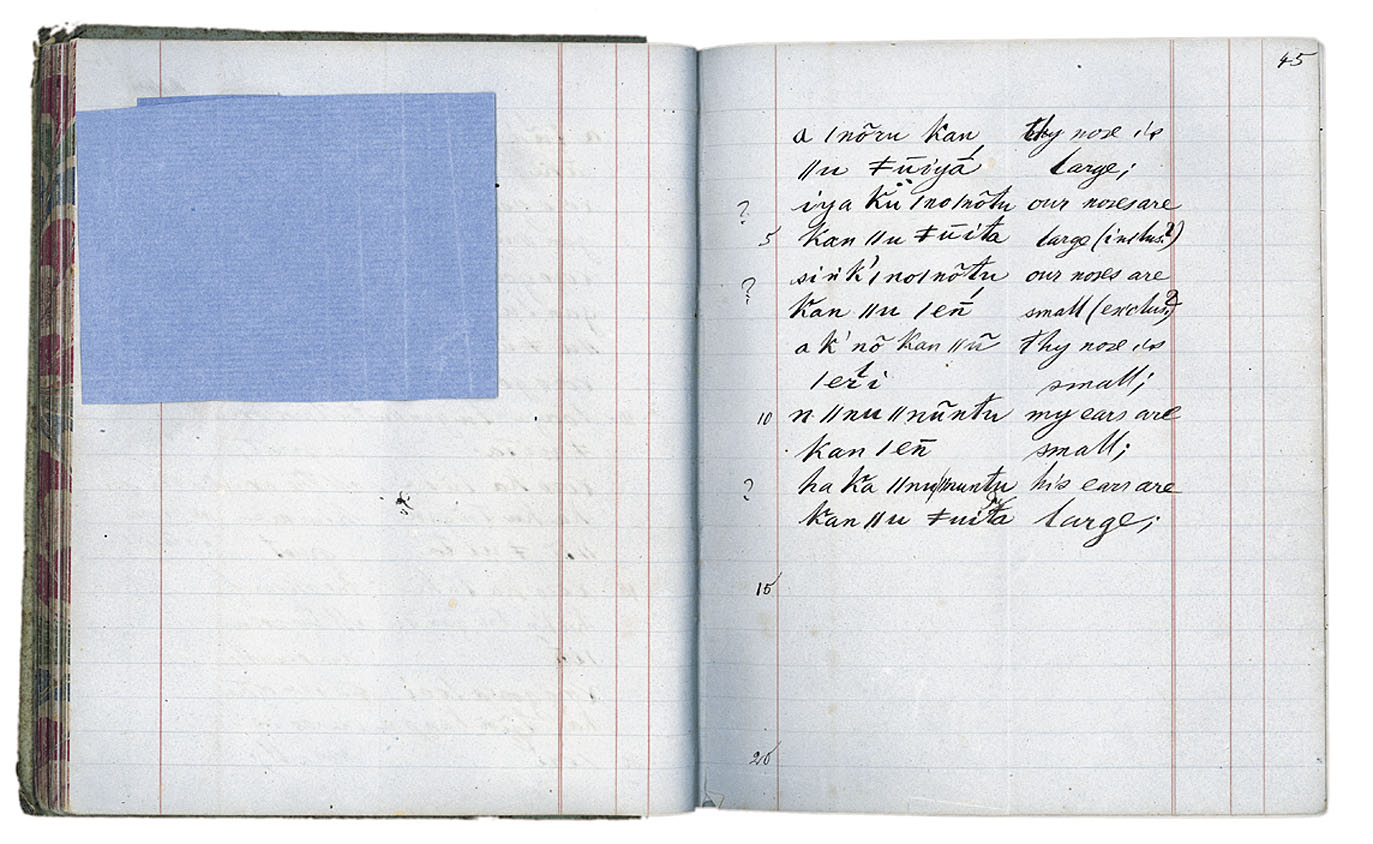 45
a /nõru kan thy nose is
//u ǂūiyá large;
? iya kü /no/nõtu our noses are
5 kan //u ǂūita large (inclus.?)
? siṅ k'/no/nõtu our noses are
kan //u /eñ́ small (exclus.?)
a k'nõ kan //ũ thy nose is
/erȉti small;
10 n //nu//nũntu my ears are
kan /eñ small;
? ha ka //nu//nuntu his ears are
kan //u ǂuita large;
15
20